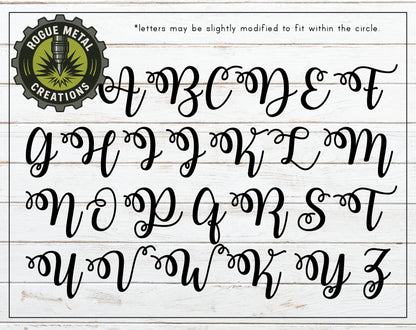 *letters may be slightly modified to fit within the circle.
ROGUE METAL
CREATIONS
A B C D E F
G H I J K L M
N O P Q R S T
U V W X Y Z